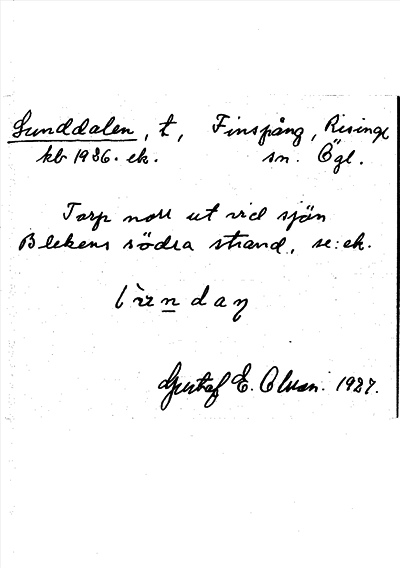 Sunddalen, t, Finspång, Risinge
kb 1936. ek. sn. Ögl.
Torp norr ut vid sjön
Blekens södra strand, se: ek.
Gustaf E. Olson. 1927.